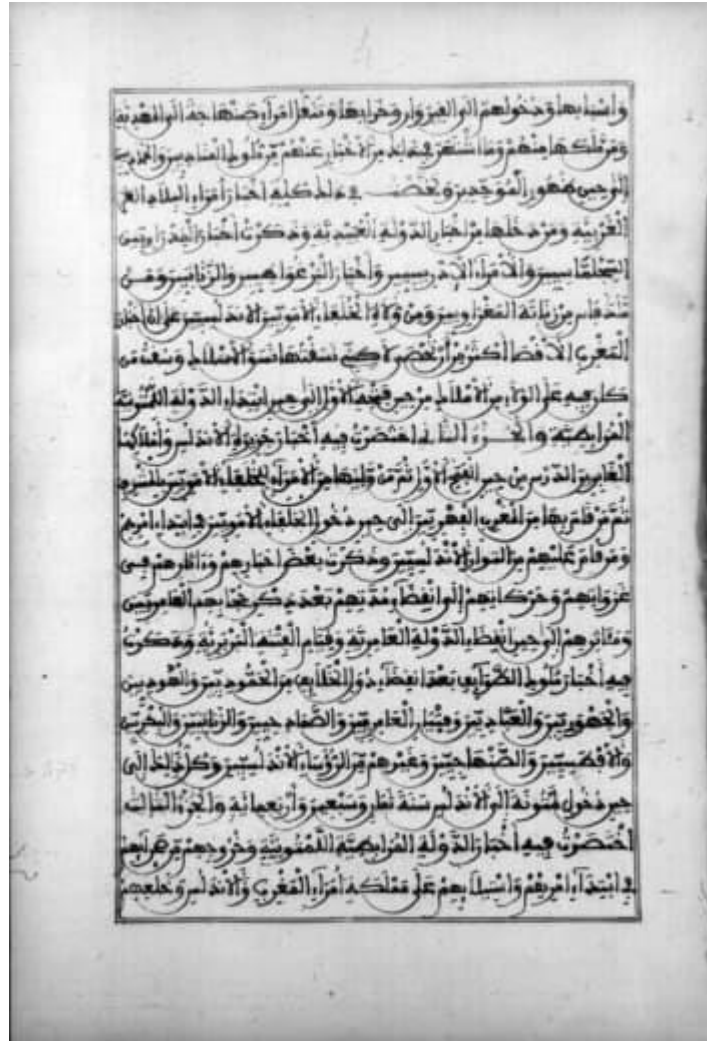 وأسبابها ودخولهم الى القيروان وخرابها وتنقل امراء صنهاجة الى المهدية
ومن ملكها منهم وما اشتهر في ذلك من الاخبار عنهم من ملوك
الى حين ظهور الموحدين وبعض في ذلك كله اخبار أمراء البلاد
الغربية ومن دخلها من اخبار الدولة العبيدية وذكرت أخبار
السجلماسيين والأمراء الإدريسيين وأخبار البرغواطيين والزناتيين ومن
ملك فاس من زناتة المغراويين ومن ولاة الخلفاء الأمويين الاندلسيين على ان أخبار
المغرب الأقصا أكثر من أن تحصر لاكني نسقتها نسق الأسلاك
كل فيه على الولاء من الأملاك من حين فتحه الأول الى حين ابتداء الدولة اللمتونية
المرابطية والجزء الثاني اختصرت فيه أخبار جزيرة الأندلس وأملاكها
من حين الفتح الأول ثم من وليها من الأمراء لخلفاء الأمويين بالمشرق
ثم من قام بها من المغرب الفهريين الى حين دخول الخلفاء الأمويين في ابتداء أمرهم
ومن قام عليهم من الثوار الأندلسيين وذكرت بعض أخبارهم وءاثارهم في
غزواتهم وحركاتهم إلى انقضاء مدتهم بعد ذكر حجابهم العامريين
ومئاثرهم إلى حين انقضاء الدولة العامرية وقيام الفتنة البربرية وذكرت
فيه أخبار ملوك الطوائف بعد انقضاء دول الخلائف من الحموديين والهوديين
والجهوريين والعباديين وفتيان العامريين والصمادحيين والزناتيين والبكريين
والأفطسيين والصنهاجيين وغيرهم من الرؤساء الأندلسيين وكل ذلك إلى
حين دخول لمتونة الى الأندلس سنة ثمان وسبعين وأربعمائة والجزء الثالث
اختصرت فيه أخبار الدولة المرابطية اللمتونية وخروجهم من صحرائهم
في ابتداء امرهم واستيلائهم على مملكة أمراء المغرب والأندلس وخلعهم